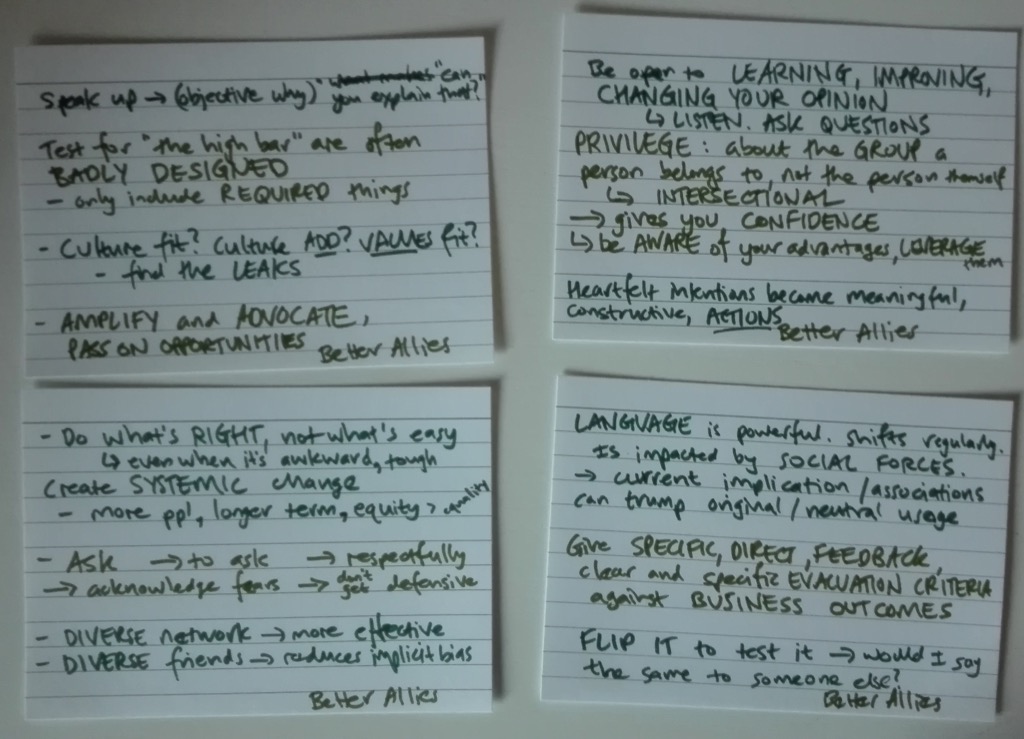 Speak up → (objective why) "can
you explain that?"
Test for "the high bar" are often
BADLY DESIGNED
- only include REQUIRED things
- Culture fit? Culture ADD? VALUES fit?
- find the LEAKS
- AMPLIFY and ADVOCATE,
PASS ON OPPORTUNITIES
Better Allies
Be open to LEARNING, IMPROVING,
CHANGING YOUR OPINION
↳ LISTEN. ASK QUESTIONS
PRIVILEGE: about the GROUP a
person belongs to, not the person themself
↳ INTERSECTIONAL
→ gives you CONFIDENCE
↳ be AWARE of your advantages, LEVERAGE
them
Heartfelt intentions become meaningful,
constructive, ACTIONS
Better Allies
- Do what's RIGHT, not what's easy
↳ even when it's awkward, tough
Create SYSTEMIC change
- more ppl, longer term, equity > equality
- Ask → to ask → respectfully
→ acknowledge fears → don't get defensive
- DIVERSE network → more effective
- DIVERSE friends → reduces implicit bias
Better Allies
LANGUAGE is powerful. Shifts regularly.
Is impacted by SOCIAL FORCES.
→ current implication/associations
can trump original/neutral usage
Give SPECIFIC, DIRECT, FEEDBACK,
clear and specific EVALUATION CRITERIA
against BUSINESS OUTCOMES
FLIP IT to test it → would I say
the same to someone else?
Better Allies